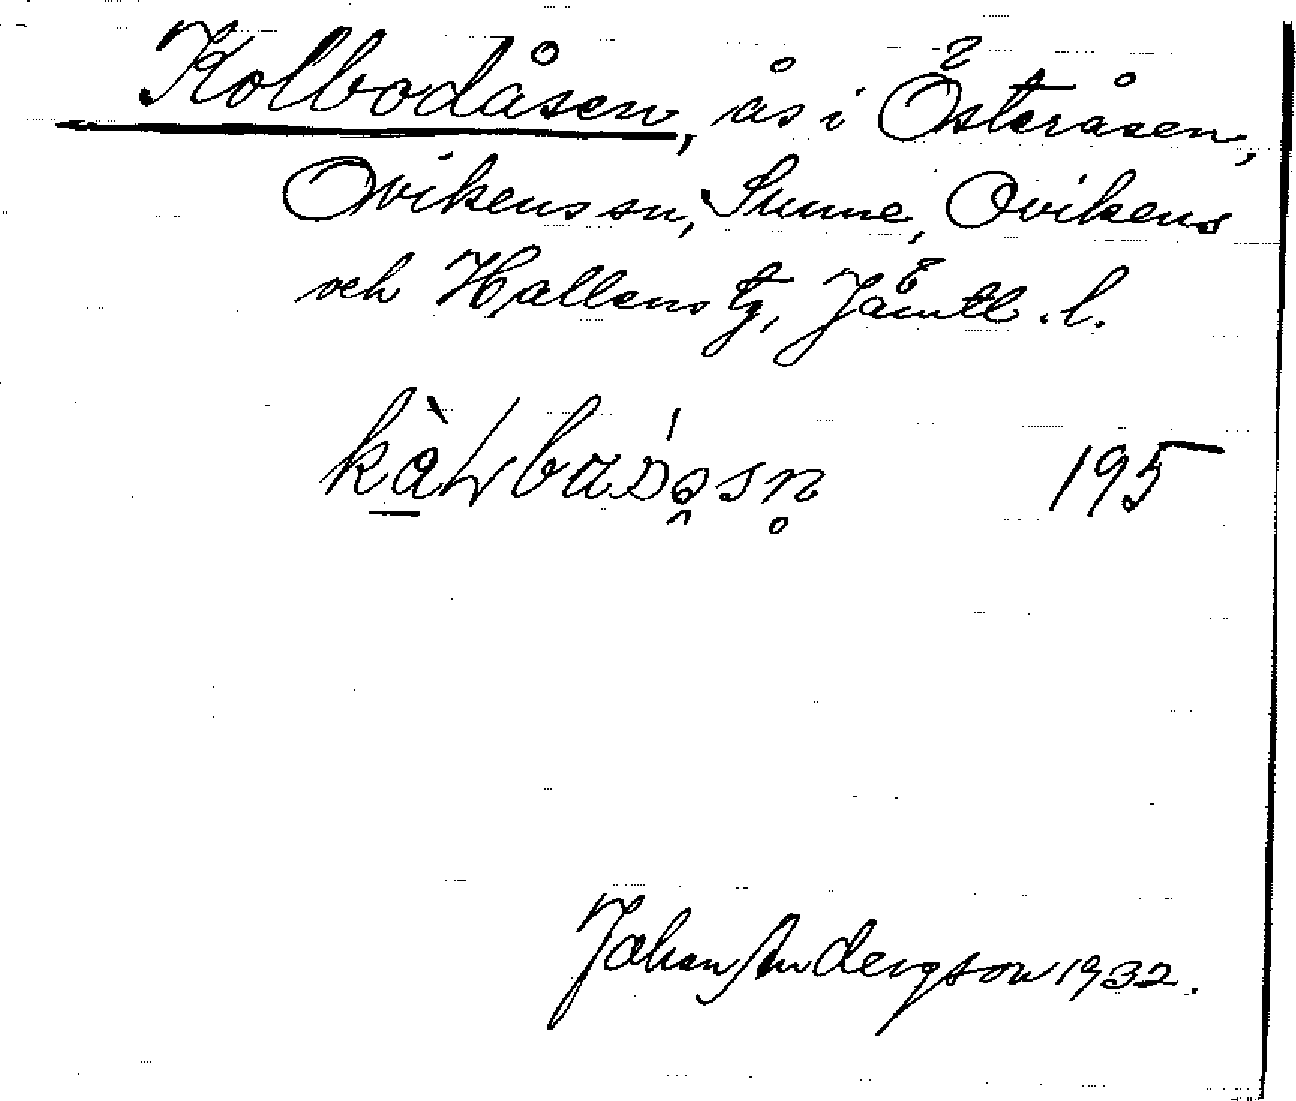 Kolbodåsen, ås i Österåsen,
Ovikens sn, Sunne, Ovikens
och Hallens tg, Jämtl. l.
195
Johan Andergson 1932.